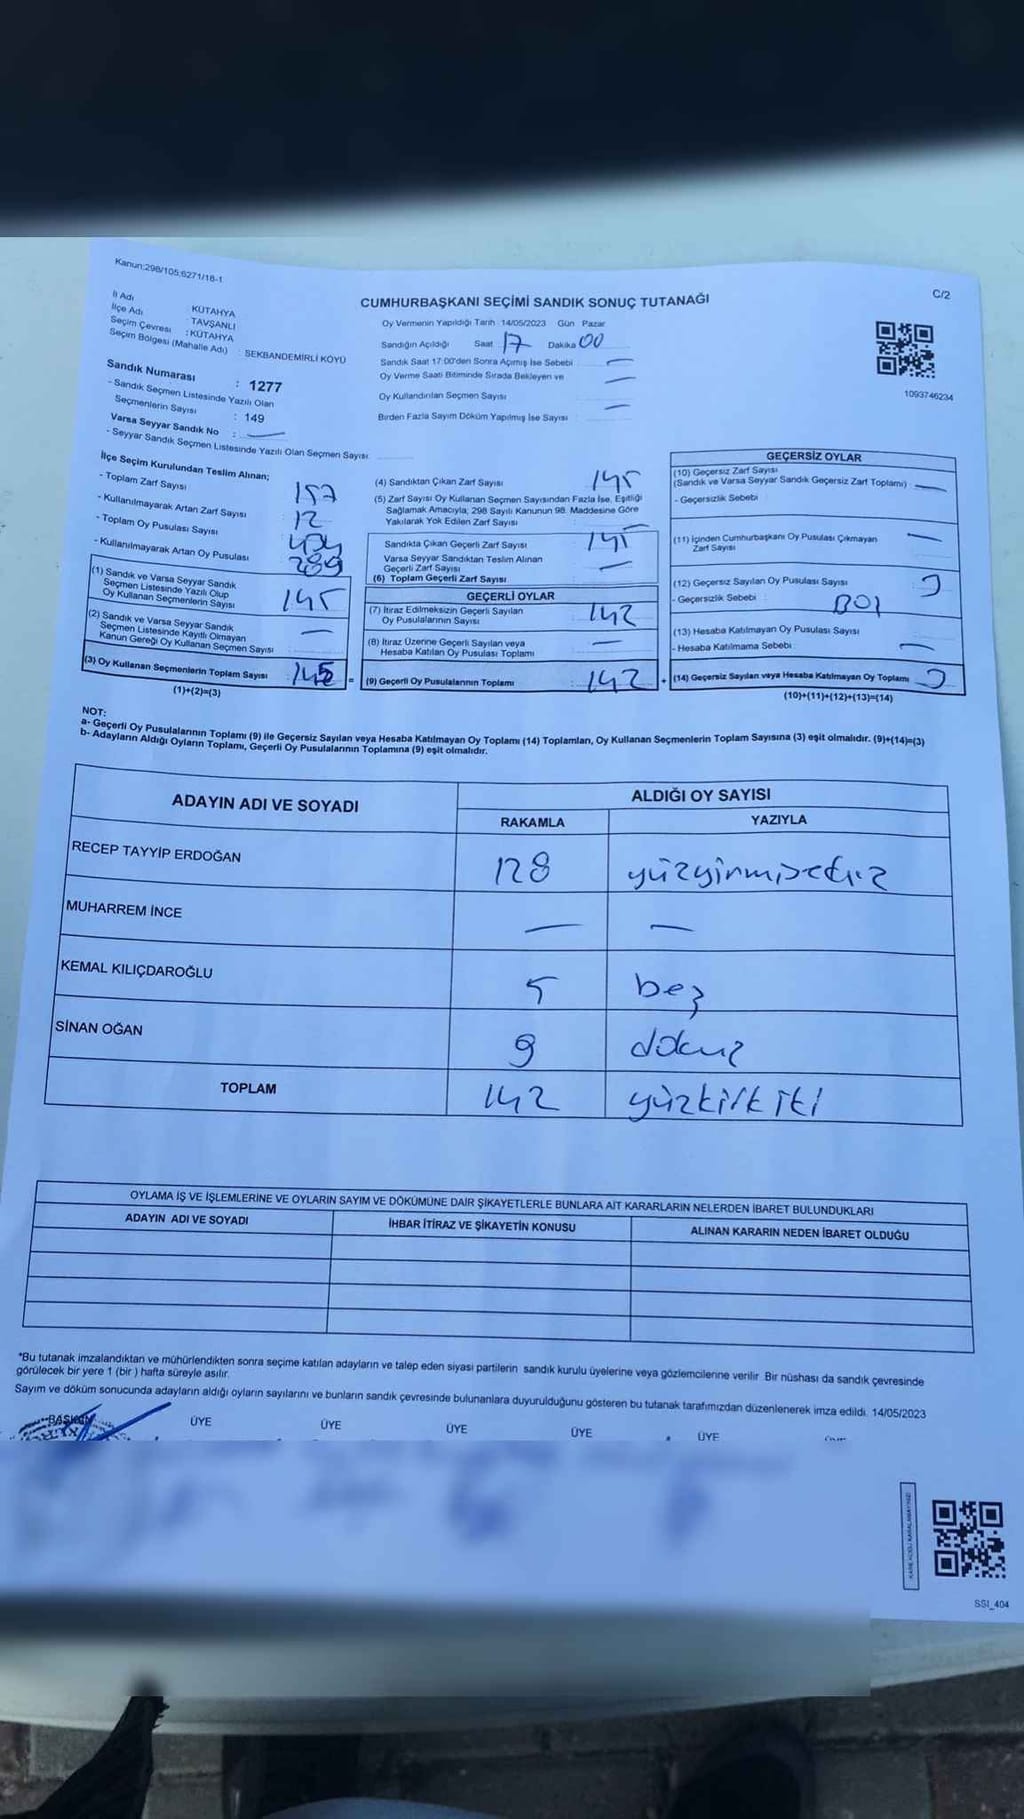 Kanun:298/105,6271/18-1
C/2
CUMHURBAŞKANI SEÇİMİ SANDIK SONUÇ TUTANAĞI
İl Adı : KÜTAHYA
İlçe Adı : TAVŞANLI
Seçim Çevresi : KÜTAHYA
Seçim Bölgesi (Mahalle Adı) : SEKBANDEMİRLİ KÖYÜ
Sandık Numarası : 1277
- Sandık Seçmen Listesinde Yazılı Olan
Seçmenlerin Sayısı : 149
Varsa Seyyar Sandık No : —
- Seyyar Sandık Seçmen Listesinde Yazılı Olan Seçmen Sayısı
Oy Vermenin Yapıldığı Tarih : 14/05/2023 Gün Pazar
Sandığın Açıldığı Saat 17 Dakika 00
Sandık Saat 17:00'den Sonra Açımış İse Sebebi —
Oy Verme Saati Bitiminde Sırada Bekleyen ve —
Oy Kullandırılan Seçmen Sayısı
Birden Fazla Sayım Döküm Yapılmış İse Sayısı —
1093746234
İlçe Seçim Kurulundan Teslim Alınan;
- Toplam Zarf Sayısı 157
- Kullanılmayarak Artan Zarf Sayısı 12
- Toplam Oy Pusulası Sayısı
- Kullanılmayarak Artan Oy Pusulası 289
(1) Sandık ve Varsa Seyyar Sandık
Seçmen Listesinde Yazılı Olup
Oy Kullanan Seçmenlerin Sayısı 145
(2) Sandık ve Varsa Seyyar Sandık
Seçmen Listesinde Kayıtlı Olmayan
Kanun Gereği Oy Kullanan Seçmen Sayısı —
(3) Oy Kullanan Seçmenlerin Toplam Sayısı 145 =
(1)+(2)=(3)
(4) Sandıktan Çıkan Zarf Sayısı 145
(5) Zarf Sayısı Oy Kullanan Seçmen Sayısından Fazla İse, Eşitliği
Sağlamak Amacıyla; 298 Sayılı Kanunun 98. Maddesine Göre
Yakılarak Yok Edilen Zarf Sayısı —
Sandıkta Çıkan Geçerli Zarf Sayısı 145
Varsa Seyyar Sandıktan Teslim Alınan
Geçerli Zarf Sayısı —
(6) Toplam Geçerli Zarf Sayısı
GEÇERLİ OYLAR
(7) İtiraz Edilmeksizin Geçerli Sayılan
Oy Pusulalarının Sayısı 142
(8) İtiraz Üzerine Geçerli Sayılan veya
Hesaba Katılan Oy Pusulası Toplamı —
(9) Geçerli Oy Pusulalarının Toplamı : 142 +
GEÇERSİZ OYLAR
(10) Geçersiz Zarf Sayısı
(Sandık ve Varsa Seyyar Sandık Geçersiz Zarf Toplamı) —
- Geçersizlik Sebebi
(11) İçinden Cumhurbaşkanı Oy Pusulası Çıkmayan
Zarf Sayısı —
(12) Geçersiz Sayılan Oy Pusulası Sayısı 3
- Geçersizlik Sebebi : BOŞ
(13) Hesaba Katılmayan Oy Pusulası Sayısı
- Hesaba Katılmama Sebebi —
(14) Geçersiz Sayılan veya Hesaba Katılmayan Oy Toplamı 3
(10)+(11)+(12)+(13)=(14)
NOT:
a- Geçerli Oy Pusulalarının Toplamı (9) ile Geçersiz Sayılan veya Hesaba Katılmayan Oy Toplamı (14) Toplamları, Oy Kullanan Seçmenlerin Toplam Sayısına (3) eşit olmalıdır. (9)+(14)=(3)
b- Adayların Aldığı Oyların Toplamı, Geçerli Oy Pusulalarının Toplamına (9) eşit olmalıdır.
ADAYIN ADI VE SOYADI
ALDIĞI OY SAYISI
RAKAMLA YAZIYLA
RECEP TAYYİP ERDOĞAN 128 yüzyirmisekiz
MUHARREM İNCE — —
KEMAL KILIÇDAROĞLU 5 beş
SİNAN OĞAN 9 dokuz
TOPLAM 142 yüzkırkiki
OYLAMA İŞ VE İŞLEMLERİNE VE OYLARIN SAYIM VE DÖKÜMÜNE DAİR ŞİKAYETLERLE BUNLARA AİT KARARLARIN NELERDEN İBARET BULUNDUKLARI
ADAYIN ADI VE SOYADI İHBAR İTİRAZ VE ŞİKAYETİN KONUSU ALINAN KARARIN NEDEN İBARET OLDUĞU
*Bu tutanak imzalandıktan ve mühürlendikten sonra seçime katılan adayların ve talep eden siyasi partilerin sandık kurulu üyelerine veya gözlemcilerine verilir. Bir nüshası da sandık çevresinde
görülecek bir yere 1 (bir ) hafta süreyle asılır.
Sayım ve döküm sonucunda adayların aldığı oyların sayılarını ve bunların sandık çevresinde bulunanlara duyurulduğunu gösteren bu tutanak tarafımızdan düzenlenerek imza edildi. 14/05/2023
BAŞKAN ÜYE ÜYE ÜYE ÜYE ÜYE
SSI_404